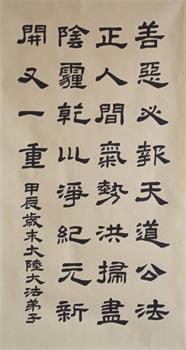 善惡必報天道公法
正人間氣勢洪掃盡
陰霾乾以淨紀元新
開又一重
甲辰歲末大陸大法弟子